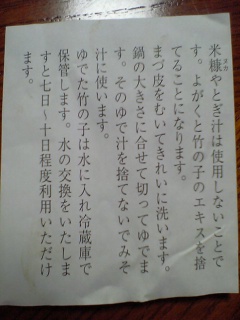 米糠やとぎ汁は使用しないことで
ヌカ
す。よがくと竹の子のエキスを捨
てることになります。
まづ皮をむいてきれいに洗います。
鍋の大きさに合せて切ってゆでま
す。そのゆで汁を捨てないでみそ
汁に使います。
ゆでた竹の子は水に入れ冷蔵庫で
保管します。水の交換をいたしま
すと七日～十日程度利用いただけ
ます。